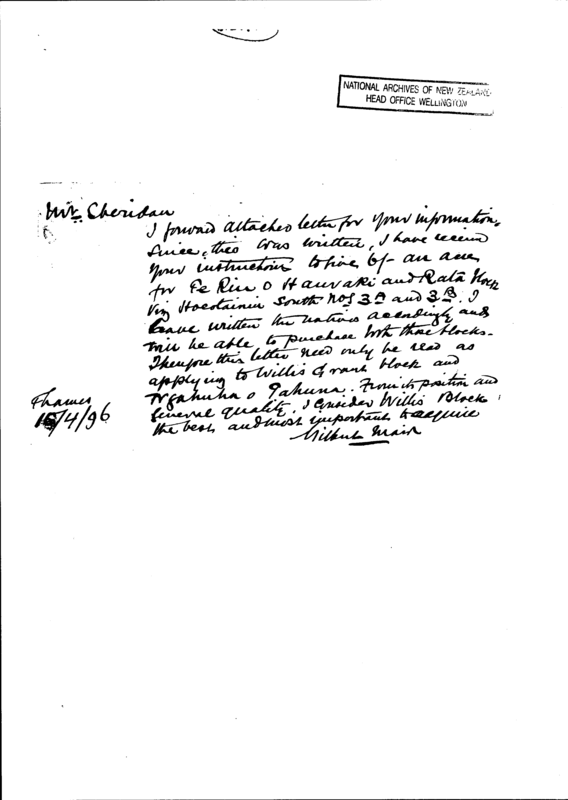 NATIONAL ARCHIVES OF NEW ZEALAND
HEAD OFFICE WELLINGTON
Mr. Sheridan
I forward attached letter for your information,
Since this was written, I have received
your instructions to give 6/- an acre
for Te Riu o Hauraki and Rata
viz Hoeotainui South Nos 3A and 3B. I
have written the natives accordingly and
will be able to purchase both these blocks.
Therefore this letter need only be read as
applying to Willis Grant block and
Ngahuha o Tahuna. From its position and
General quality, I Consider Willis' Block
the best and most important to acquire
Gilbert Mair
Thames
15/4/96